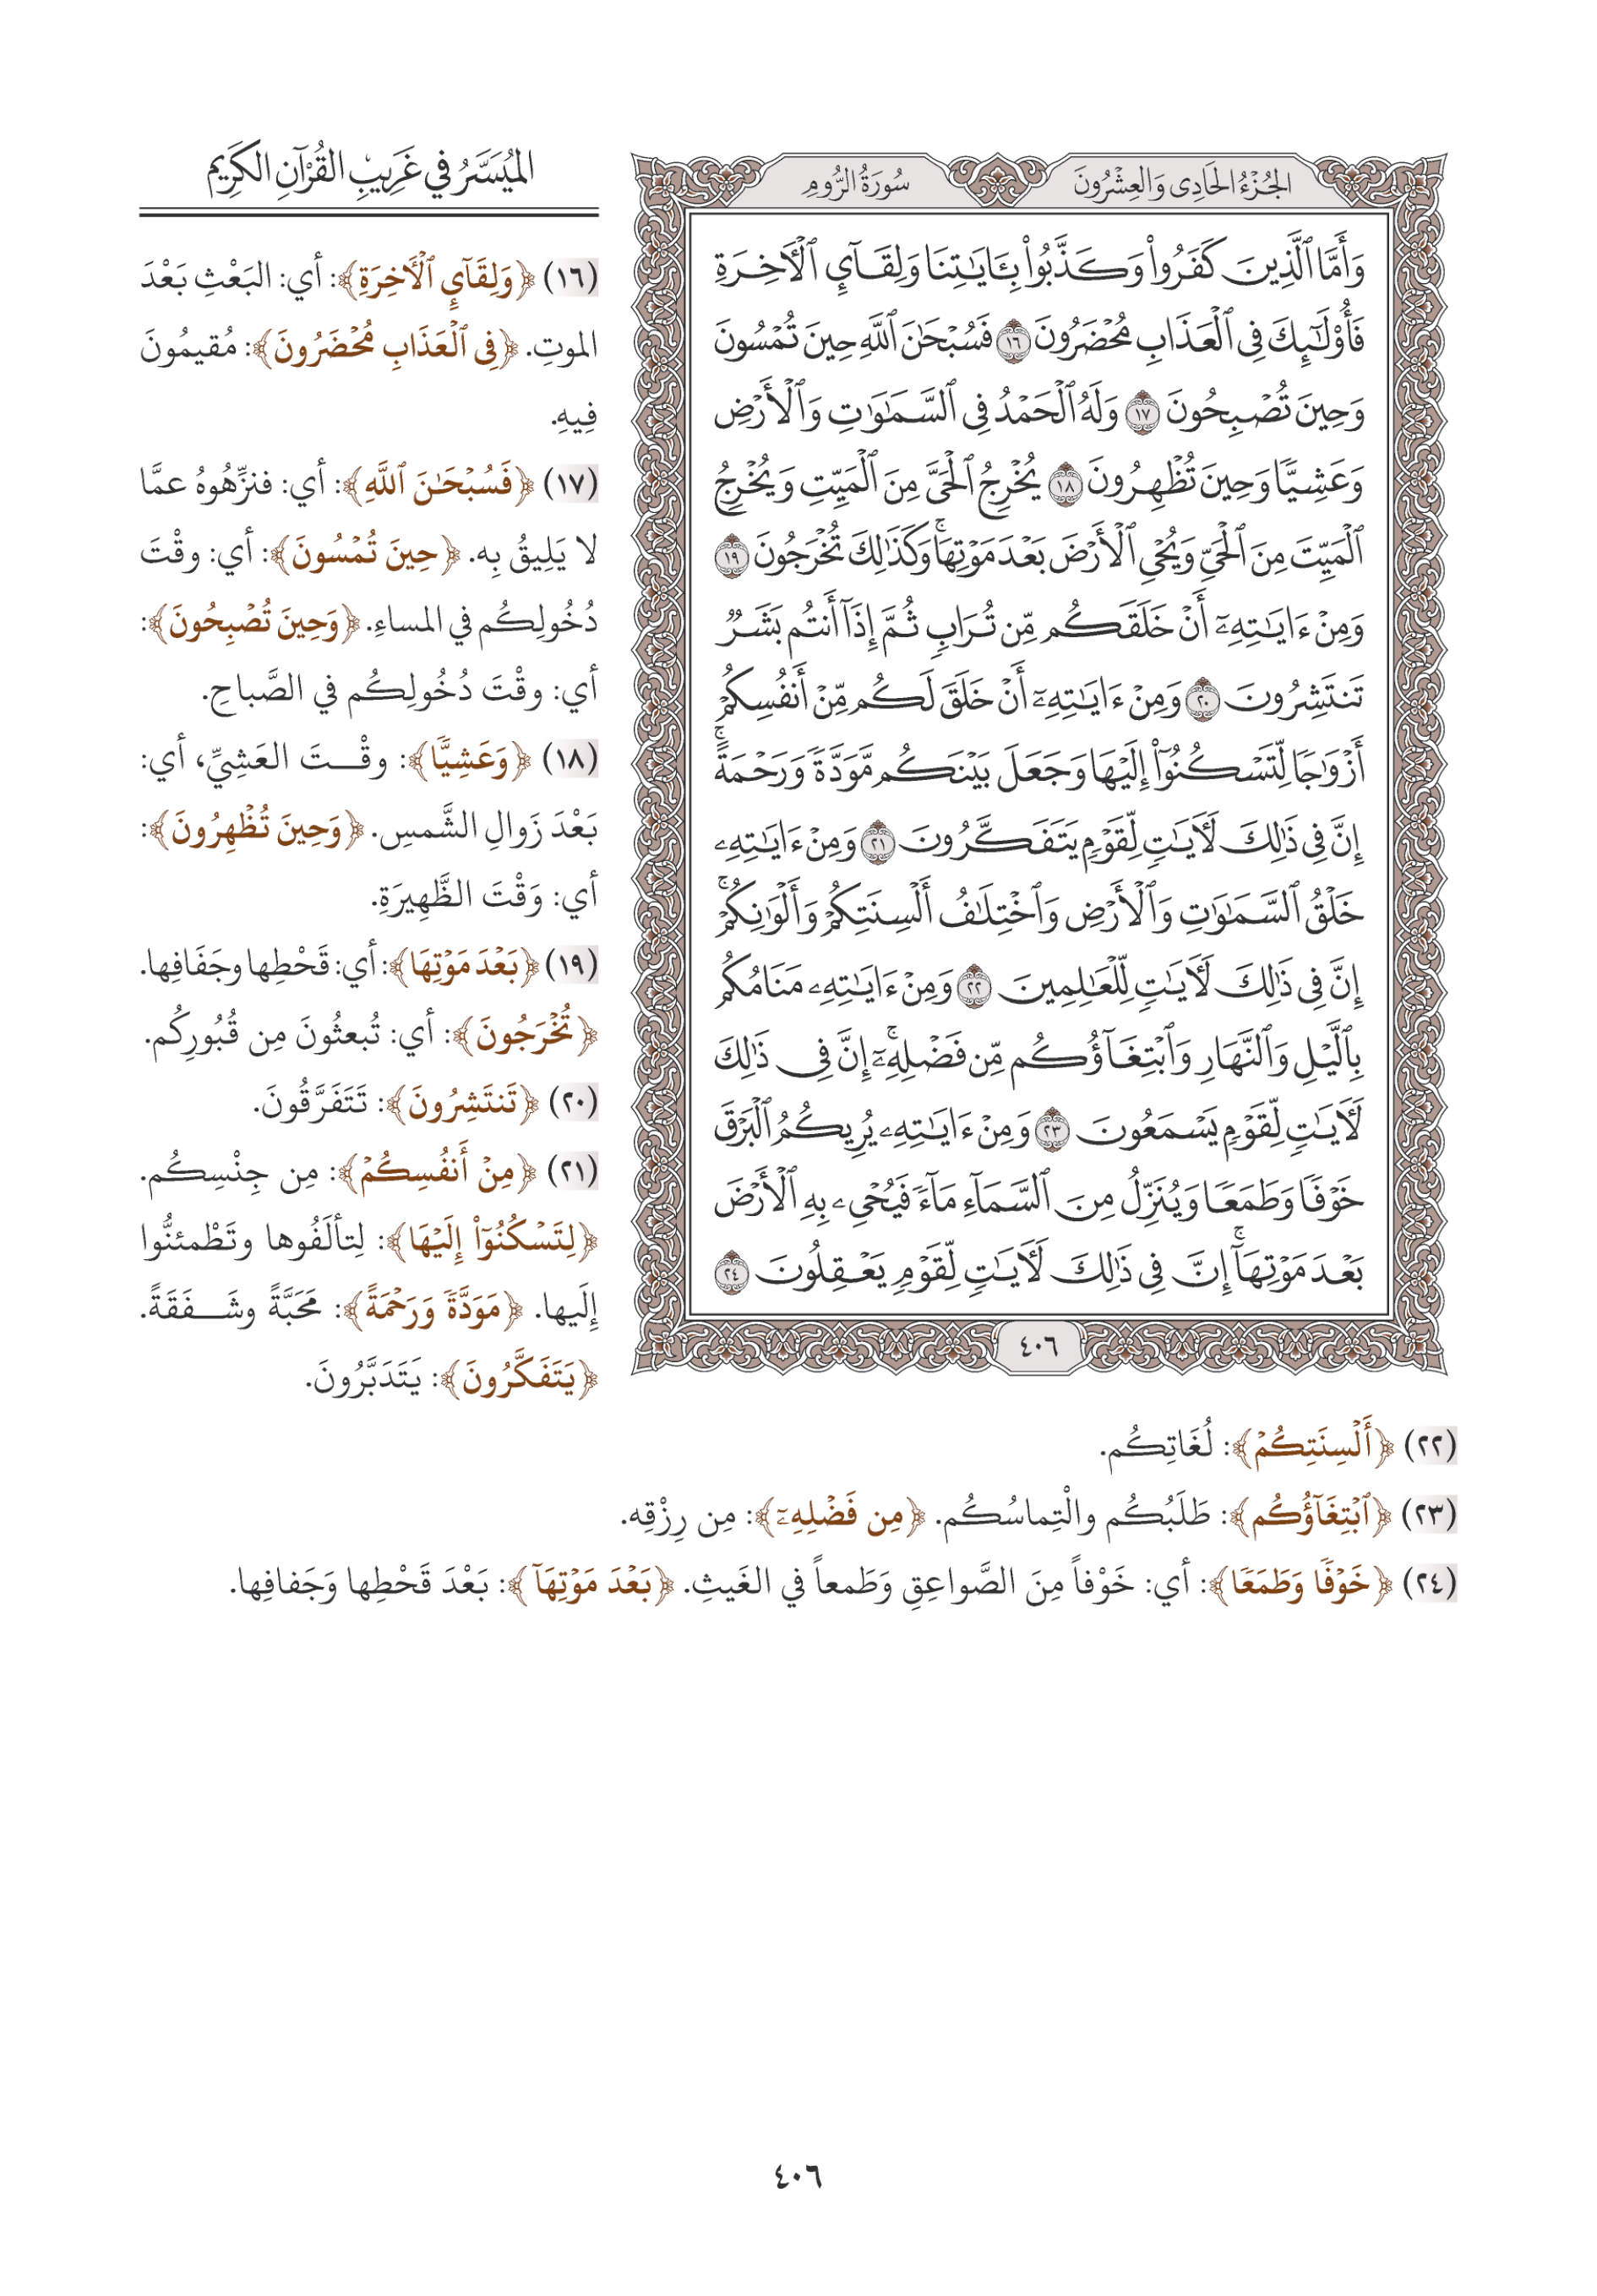 الجُزْءُ الحَادِى وَالعِشْرُونَ
سُورَةُ الرُّومِ
وَأَمَّا ٱلَّذِينَ كَفَرُوا۟ وَكَذَّبُوا۟ بِـَٔايَـٰتِنَا وَلِقَآئِ ٱلْـَٔاخِرَةِ
فَأُو۟لَـٰٓئِكَ فِى ٱلْعَذَابِ مُحْضَرُونَ ١٦ فَسُبْحَـٰنَ ٱللَّهِ حِينَ تُمْسُونَ
وَحِينَ تُصْبِحُونَ ١٧ وَلَهُ ٱلْحَمْدُ فِى ٱلسَّمَـٰوَٰتِ وَٱلْأَرْضِ
وَعَشِيًّا وَحِينَ تُظْهِرُونَ ١٨ يُخْرِجُ ٱلْحَىَّ مِنَ ٱلْمَيِّتِ وَيُخْرِجُ
ٱلْمَيِّتَ مِنَ ٱلْحَىِّ وَيُحْىِ ٱلْأَرْضَ بَعْدَ مَوْتِهَا ۚ وَكَذَٰلِكَ تُخْرَجُونَ ١٩
وَمِنْ ءَايَـٰتِهِۦٓ أَنْ خَلَقَكُم مِّن تُرَابٍ ثُمَّ إِذَآ أَنتُم بَشَرٌ
تَنتَشِرُونَ ٢٠ وَمِنْ ءَايَـٰتِهِۦٓ أَنْ خَلَقَ لَكُم مِّنْ أَنفُسِكُمْ
أَزْوَٰجًا لِّتَسْكُنُوٓا۟ إِلَيْهَا وَجَعَلَ بَيْنَكُم مَّوَدَّةً وَرَحْمَةً ۚ
إِنَّ فِى ذَٰلِكَ لَـَٔايَـٰتٍ لِّقَوْمٍ يَتَفَكَّرُونَ ٢١ وَمِنْ ءَايَـٰتِهِۦ
خَلْقُ ٱلسَّمَـٰوَٰتِ وَٱلْأَرْضِ وَٱخْتِلَـٰفُ أَلْسِنَتِكُمْ وَأَلْوَٰنِكُمْ ۚ
إِنَّ فِى ذَٰلِكَ لَـَٔايَـٰتٍ لِّلْعَـٰلِمِينَ ٢٢ وَمِنْ ءَايَـٰتِهِۦ مَنَامُكُم
بِٱلَّيْلِ وَٱلنَّهَارِ وَٱبْتِغَآؤُكُم مِّن فَضْلِهِۦٓ ۚ إِنَّ فِى ذَٰلِكَ
لَـَٔايَـٰتٍ لِّقَوْمٍ يَسْمَعُونَ ٢٣ وَمِنْ ءَايَـٰتِهِۦ يُرِيكُمُ ٱلْبَرْقَ
خَوْفًا وَطَمَعًا وَيُنَزِّلُ مِنَ ٱلسَّمَآءِ مَآءً فَيُحْىِۦ بِهِ ٱلْأَرْضَ
بَعْدَ مَوْتِهَآ ۚ إِنَّ فِى ذَٰلِكَ لَـَٔايَـٰتٍ لِّقَوْمٍ يَعْقِلُونَ ٢٤
٤٠٦
الميُسَّرُ في غَرِيبِ القُرْآنِ الكَرِيم
(١٦) ﴿وَلِقَآئِ ٱلْـَٔاخِرَةِ﴾: أي: البَعْثِ بَعْدَ
الموتِ. ﴿فِى ٱلْعَذَابِ مُحْضَرُونَ﴾: مُقيمُونَ
فِيهِ.
(١٧) ﴿فَسُبْحَـٰنَ ٱللَّهِ﴾: أي: فنزِّهُوهُ عمَّا
لا يَلِيقُ بِه. ﴿حِينَ تُمْسُونَ﴾: أي: وقْتَ
دُخُولِكُم في المساءِ. ﴿وَحِينَ تُصْبِحُونَ﴾:
أي: وقْتَ دُخُولِكُم في الصَّباحِ.
(١٨) ﴿وَعَشِيًّا﴾: وقْـــتَ العَشِيِّ، أي:
بَعْدَ زَوالِ الشَّمسِ. ﴿وَحِينَ تُظْهِرُونَ﴾:
أي: وَقْتَ الظَّهِيرَةِ.
(١٩) ﴿بَعْدَ مَوْتِهَا﴾: أي: قَحْطِها وجَفَافِها.
﴿تُخْرَجُونَ﴾: أي: تُبعثُونَ مِن قُبُورِكُم.
(٢٠) ﴿تَنتَشِرُونَ﴾: تَتَفَرَّقُونَ.
(٢١) ﴿مِنْ أَنفُسِكُمْ﴾: مِن جِنْسِكُم.
﴿لِتَسْكُنُوٓا۟ إِلَيْهَا﴾: لِتألَفُوها وتَطْمئنُّوا
إِلَيها. ﴿مَوَدَّةً وَرَحْمَةً﴾: مَحَبَّةً وشَـــفَقَةً.
﴿يَتَفَكَّرُونَ﴾: يَتَدَبَّرُونَ.
(٢٢) ﴿أَلْسِنَتِكُمْ﴾: لُغَاتِكُم.
(٢٣) ﴿ٱبْتِغَآؤُكُم﴾: طَلَبُكُم والْتِماسُكُم. ﴿مِن فَضْلِهِۦٓ﴾: مِن رِزْقِه.
(٢٤) ﴿خَوْفًا وَطَمَعًا﴾: أي: خَوْفاً مِنَ الصَّواعِقِ وَطَمعاً في الغَيثِ. ﴿بَعْدَ مَوْتِهَآ﴾: بَعْدَ قَحْطِها وَجَفافِها.
٤٠٦